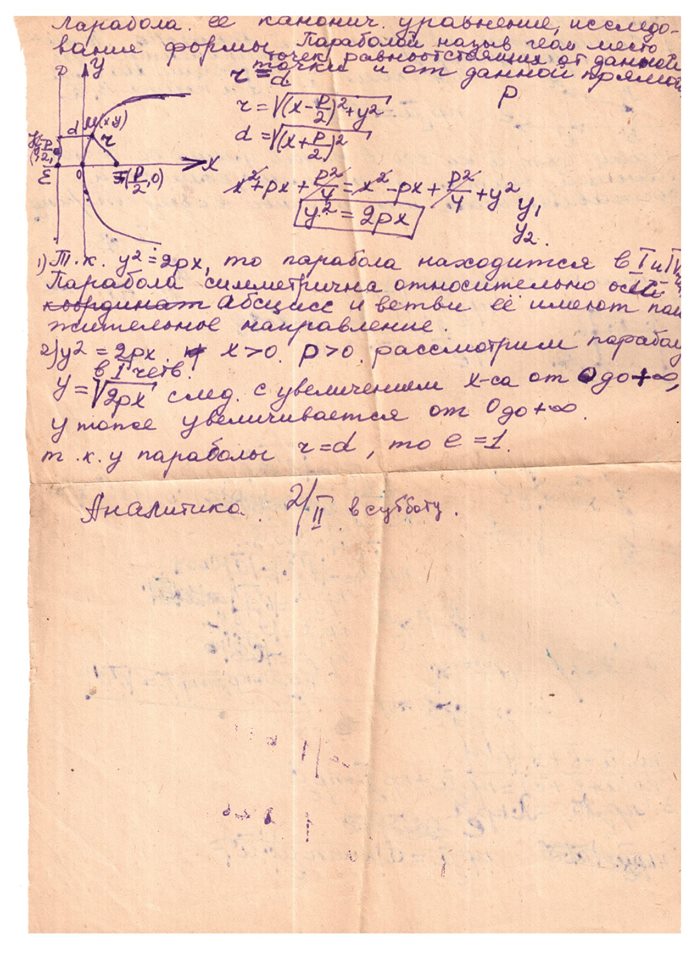 Парабола. её каноничн. уравнение, исследо-
вание формы. Параболой назыв геом место
точек, равноотстоящих от данной
точки и от данной прямой
r = d
r = √(x-p/2)²+y²
p
d = √(x+p/2)²
y
M(x,y)
d
r
K(-p/2,
E
0
F(p/2,0)
x
x²+px+p²/4 = x²-px+p²/4+y²
y² = 2px
y₁
y₂.
1) Т.к. y²=2px, то парабола находится в I и IV
Парабола симметрична относительно оси
координат Абсцисс и ветви её имеют
жительное направление.
2) y² = 2px. x>0. p>0. рассмотрим параболу
в I четв.
y = √2px след. с увеличением x-са от 0 до +∞,
y тоже увеличивается от 0 до +∞.
т.к. у параболы r=d, то e=1.
Аналитика. 2/II в субботу.